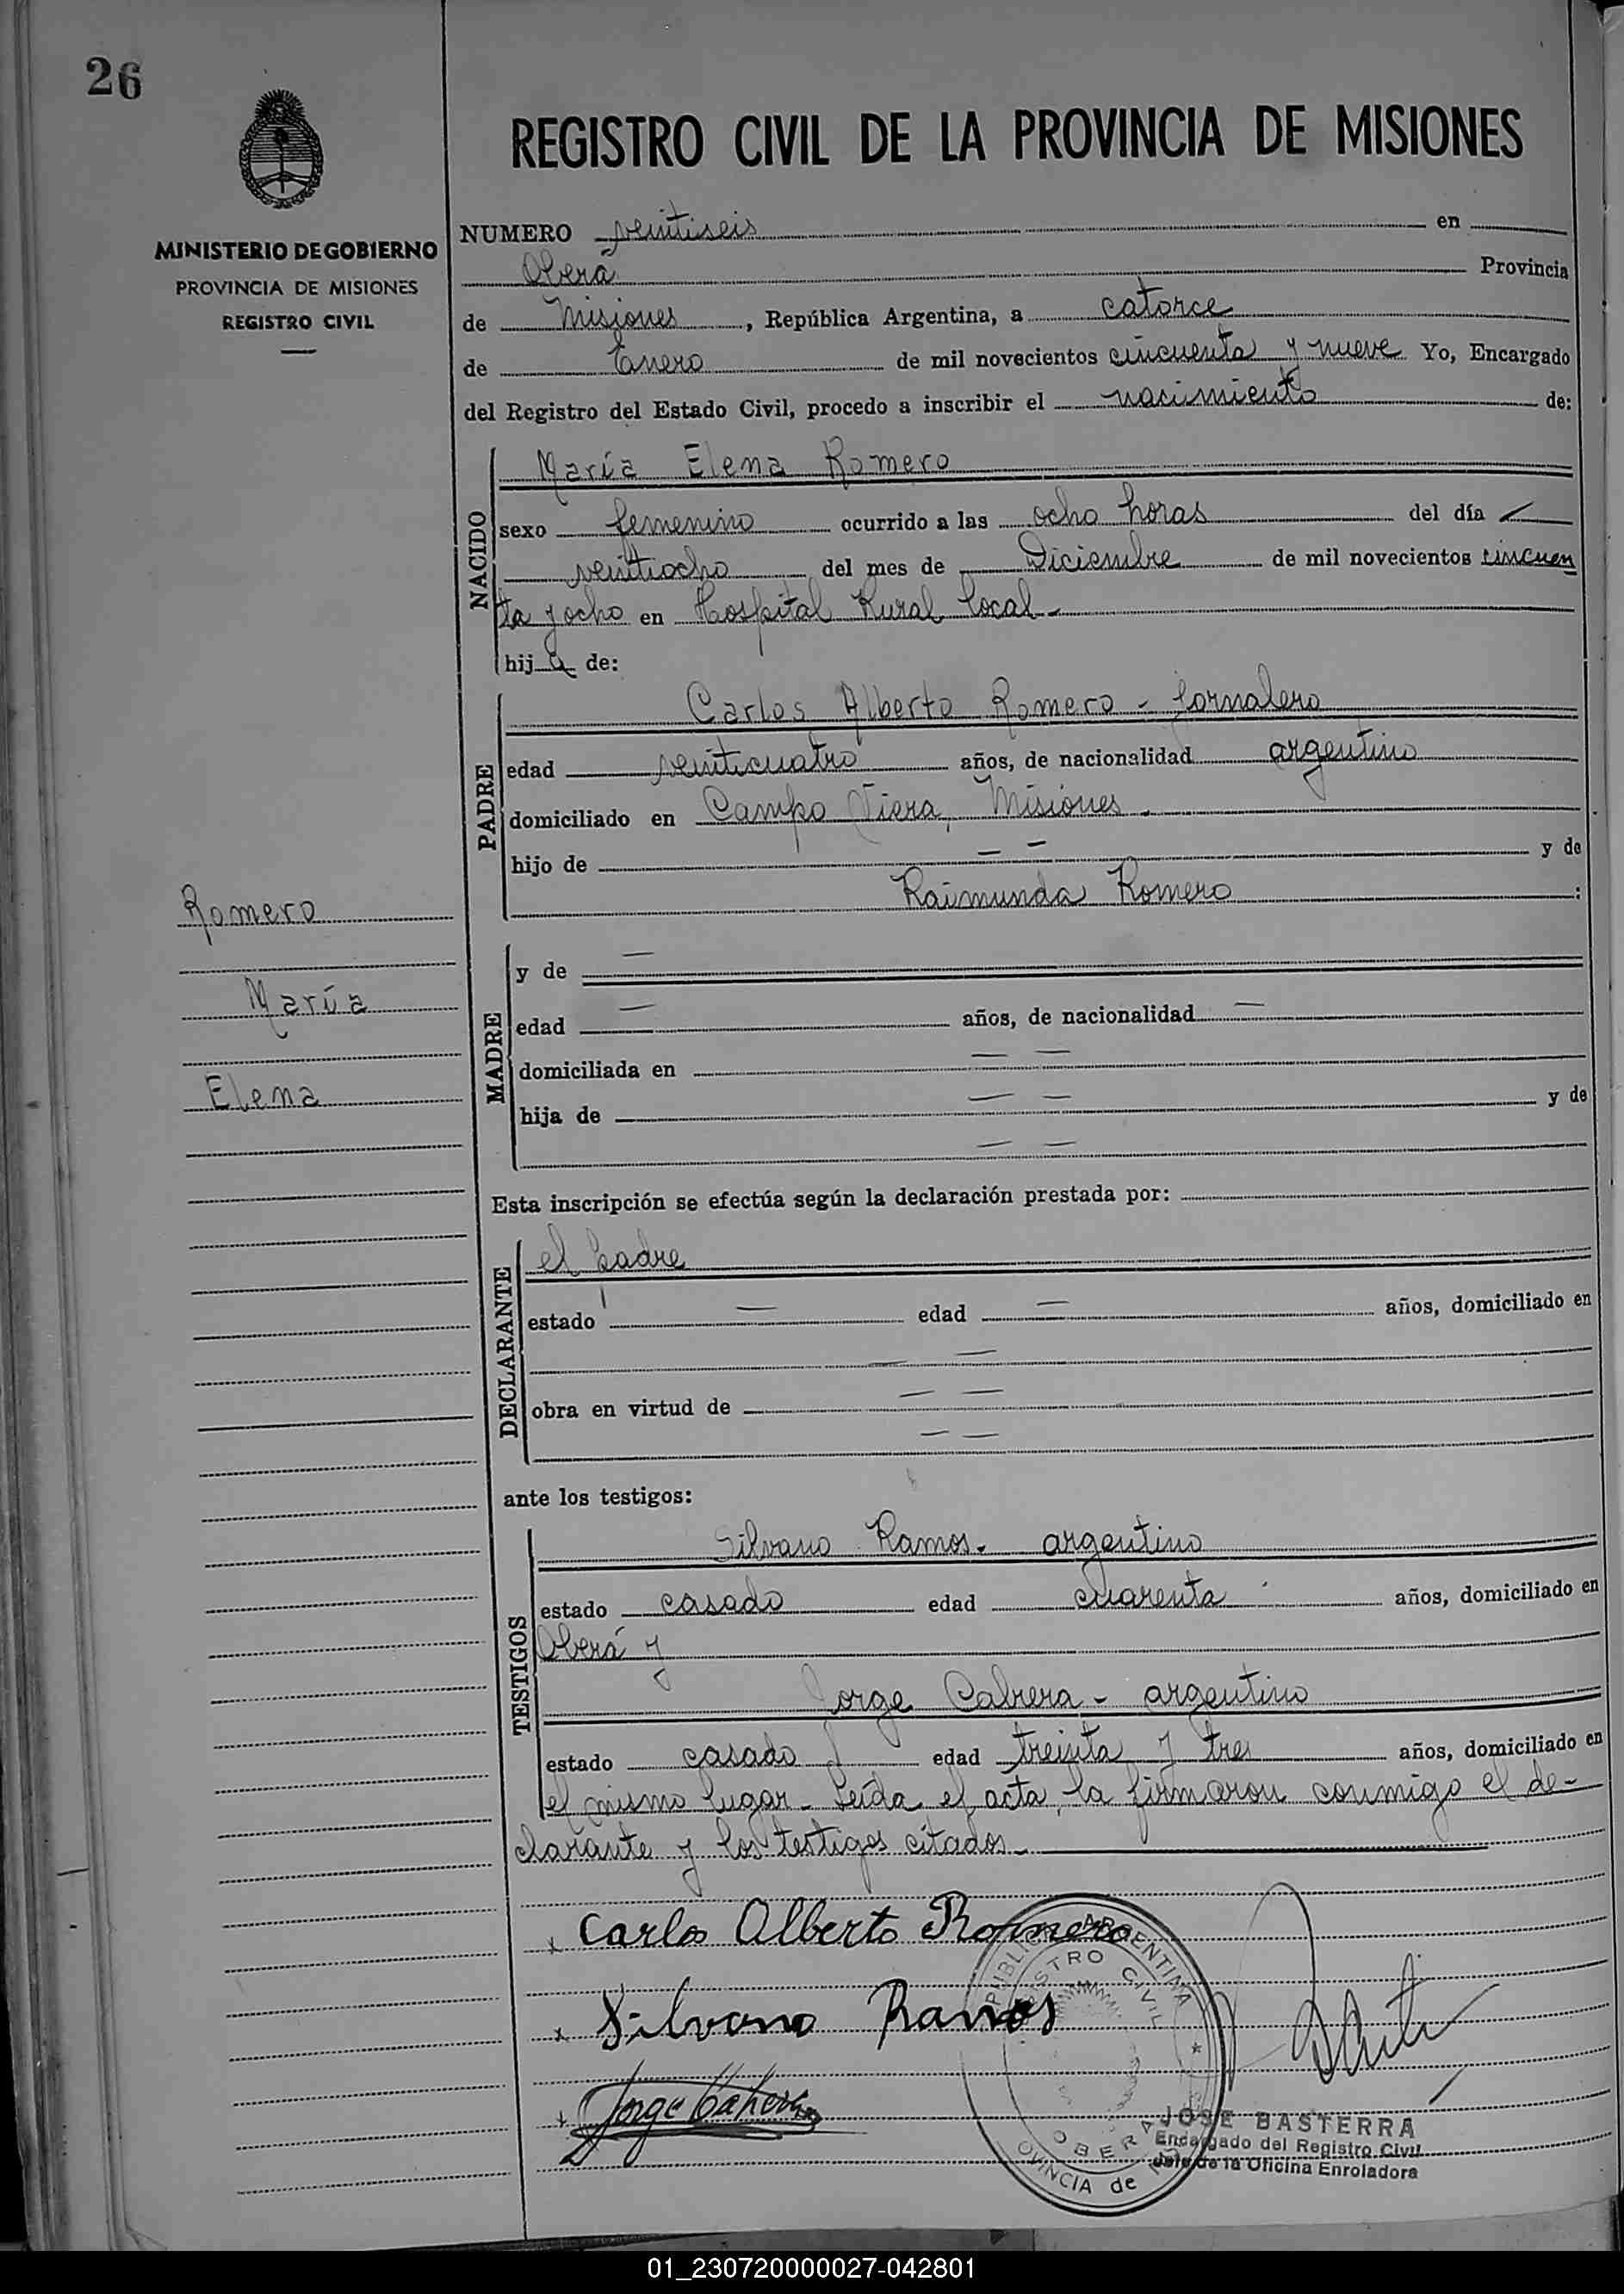 26
REGISTRO CIVIL DE LA PROVINCIA DE MISIONES
MINISTERIO DE GOBIERNO
PROVINCIA DE MISIONES
REGISTRO CIVIL
NUMERO veintiseis en
Oberá Provincia
de Misiones, República Argentina, a catorce
de Enero de mil novecientos cincuenta y nueve Yo, Encargado
del Registro del Estado Civil, procedo a inscribir el nacimiento de:
NACIDO
María Elena Romero
sexo femenino ocurrido a las ocho horas del día
veintiocho del mes de Diciembre de mil novecientos cincuen
ta y ocho en Hospital Rural local.-
hija de:
PADRE
Carlos Alberto Romero - Jornalero
edad veinticuatro años, de nacionalidad argentino
domiciliado en Campo Viera, Misiones.
hijo de — — y de
Raimunda Romero :
Romero
María
Elena
MADRE
y de —
edad — años, de nacionalidad —
domiciliada en — —
hija de — — y de
— —
Esta inscripción se efectúa según la declaración prestada por:
DECLARANTE
el padre
estado — edad — años, domiciliado en
— —
obra en virtud de — —
— —
ante los testigos:
TESTIGOS
Silvano Ramos. argentino
estado casado edad cuarenta años, domiciliado en
Oberá y
Jorge Cabrera - argentino
estado casado edad treinta y tres años, domiciliado en
el mismo lugar - Leída el acta, la firmaron conmigo el de-
clarante y los testigos citados.-
x Carlos Alberto Romero
x Silvano Ramos
x Jorge Cabrera
PUBLICA ARGENTINA
STRO CIVIL
OBERA
OVINCIA de
JOSE BASTERRA
Encargado del Registro Civil
Jefe de la Oficina Enroladora
01_230720000027-042801